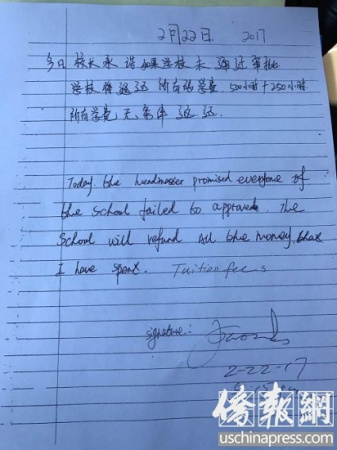 2月22日. 2017
今日 校长承诺如果学校未通过审批
学校将退还所有的学费 500小时+250小时
所有学费无条件返还.
Today. the headmaster promised everyone of
the school failed to approved. The
School will refund All the money that
I have spent. Tuition fees
signature:
2-22-17
僑報網
uschinapress.com